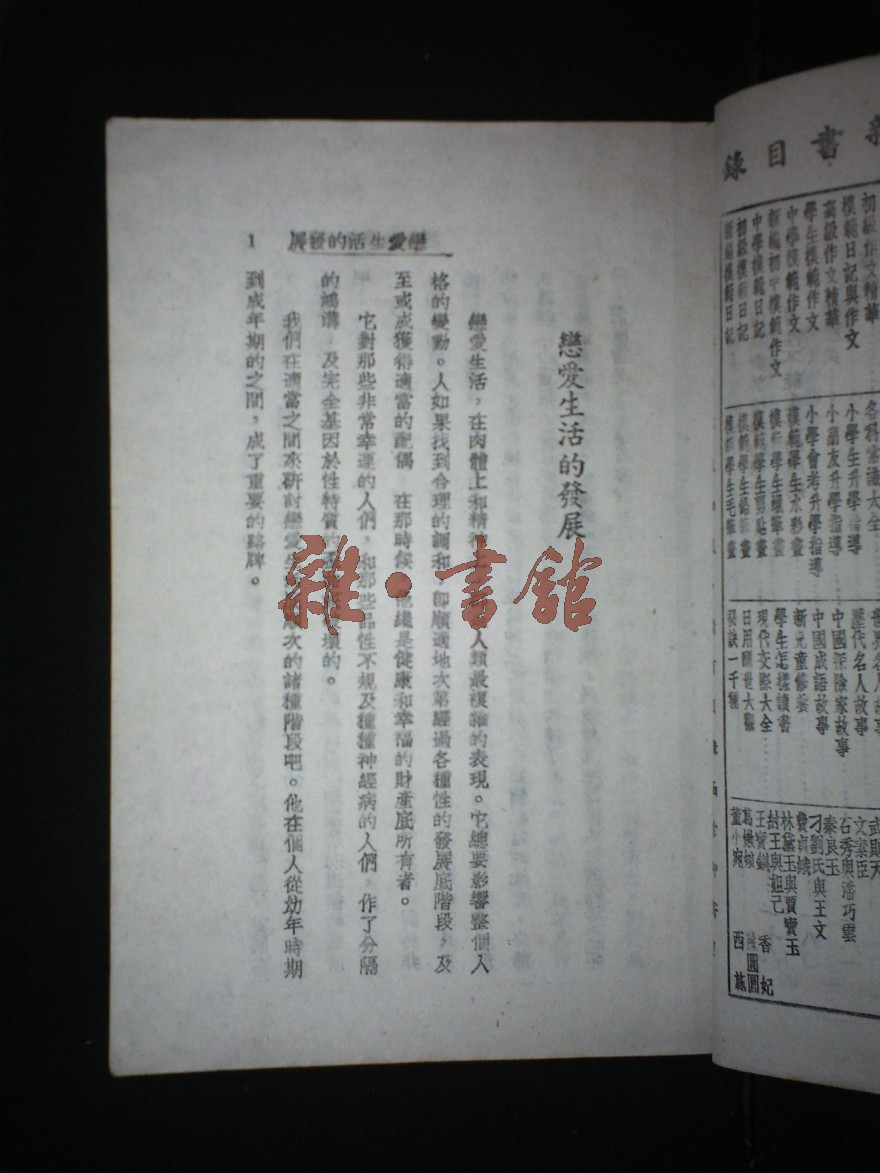 書目錄
初級作文精華
模範日記與作文
高級作文精華
學生模範作文
中學模範作文
新編初中模範作文
中學模範日記
初級模範日記
模範日記
各科常識大全
小學生升學指導
小朋友升學指導
小學會考升學指導
模範學生水彩畫
模範學生蠟筆畫
模範學生剪貼畫
模範學生鉛筆畫
模範學生毛筆畫
世界名人故事
歷代名人故事
中國探險家故事
中國成語故事
新兒童修養
學生怎樣讀書
現代交際大全
日用醒世大觀
秘訣一千種
武則天
文素臣
石秀與潘巧雲
秦良玉
刁劉氏與王文
費貞娥
林黛玉與賈寶玉
紂王與妲己
王寶釧 香妃
葛嫩娘 陳圓圓
董小宛 西施
戀愛生活的發展
1
戀愛生活的發展
戀愛生活，在肉體上和精神 人類最複雜的表現。它總要影響整個人
格的變動。人如果找到合理的調和，即順適地次第經過各種性的發展底階段，及
至或成獲得適當的配偶 在那時候 他纔是健康和幸福的財產底所有者。
它對那些非常幸運的人們，和那些品性不規及種種神經病的人們，作了分隔
的鴻溝 及完全基因於性特質的 壞的。
我們在適當之間來研討戀愛生 次的諸種階段吧。他在個人從幼年時期
到成年期的之間，成了重要的路牌。
雜·書館